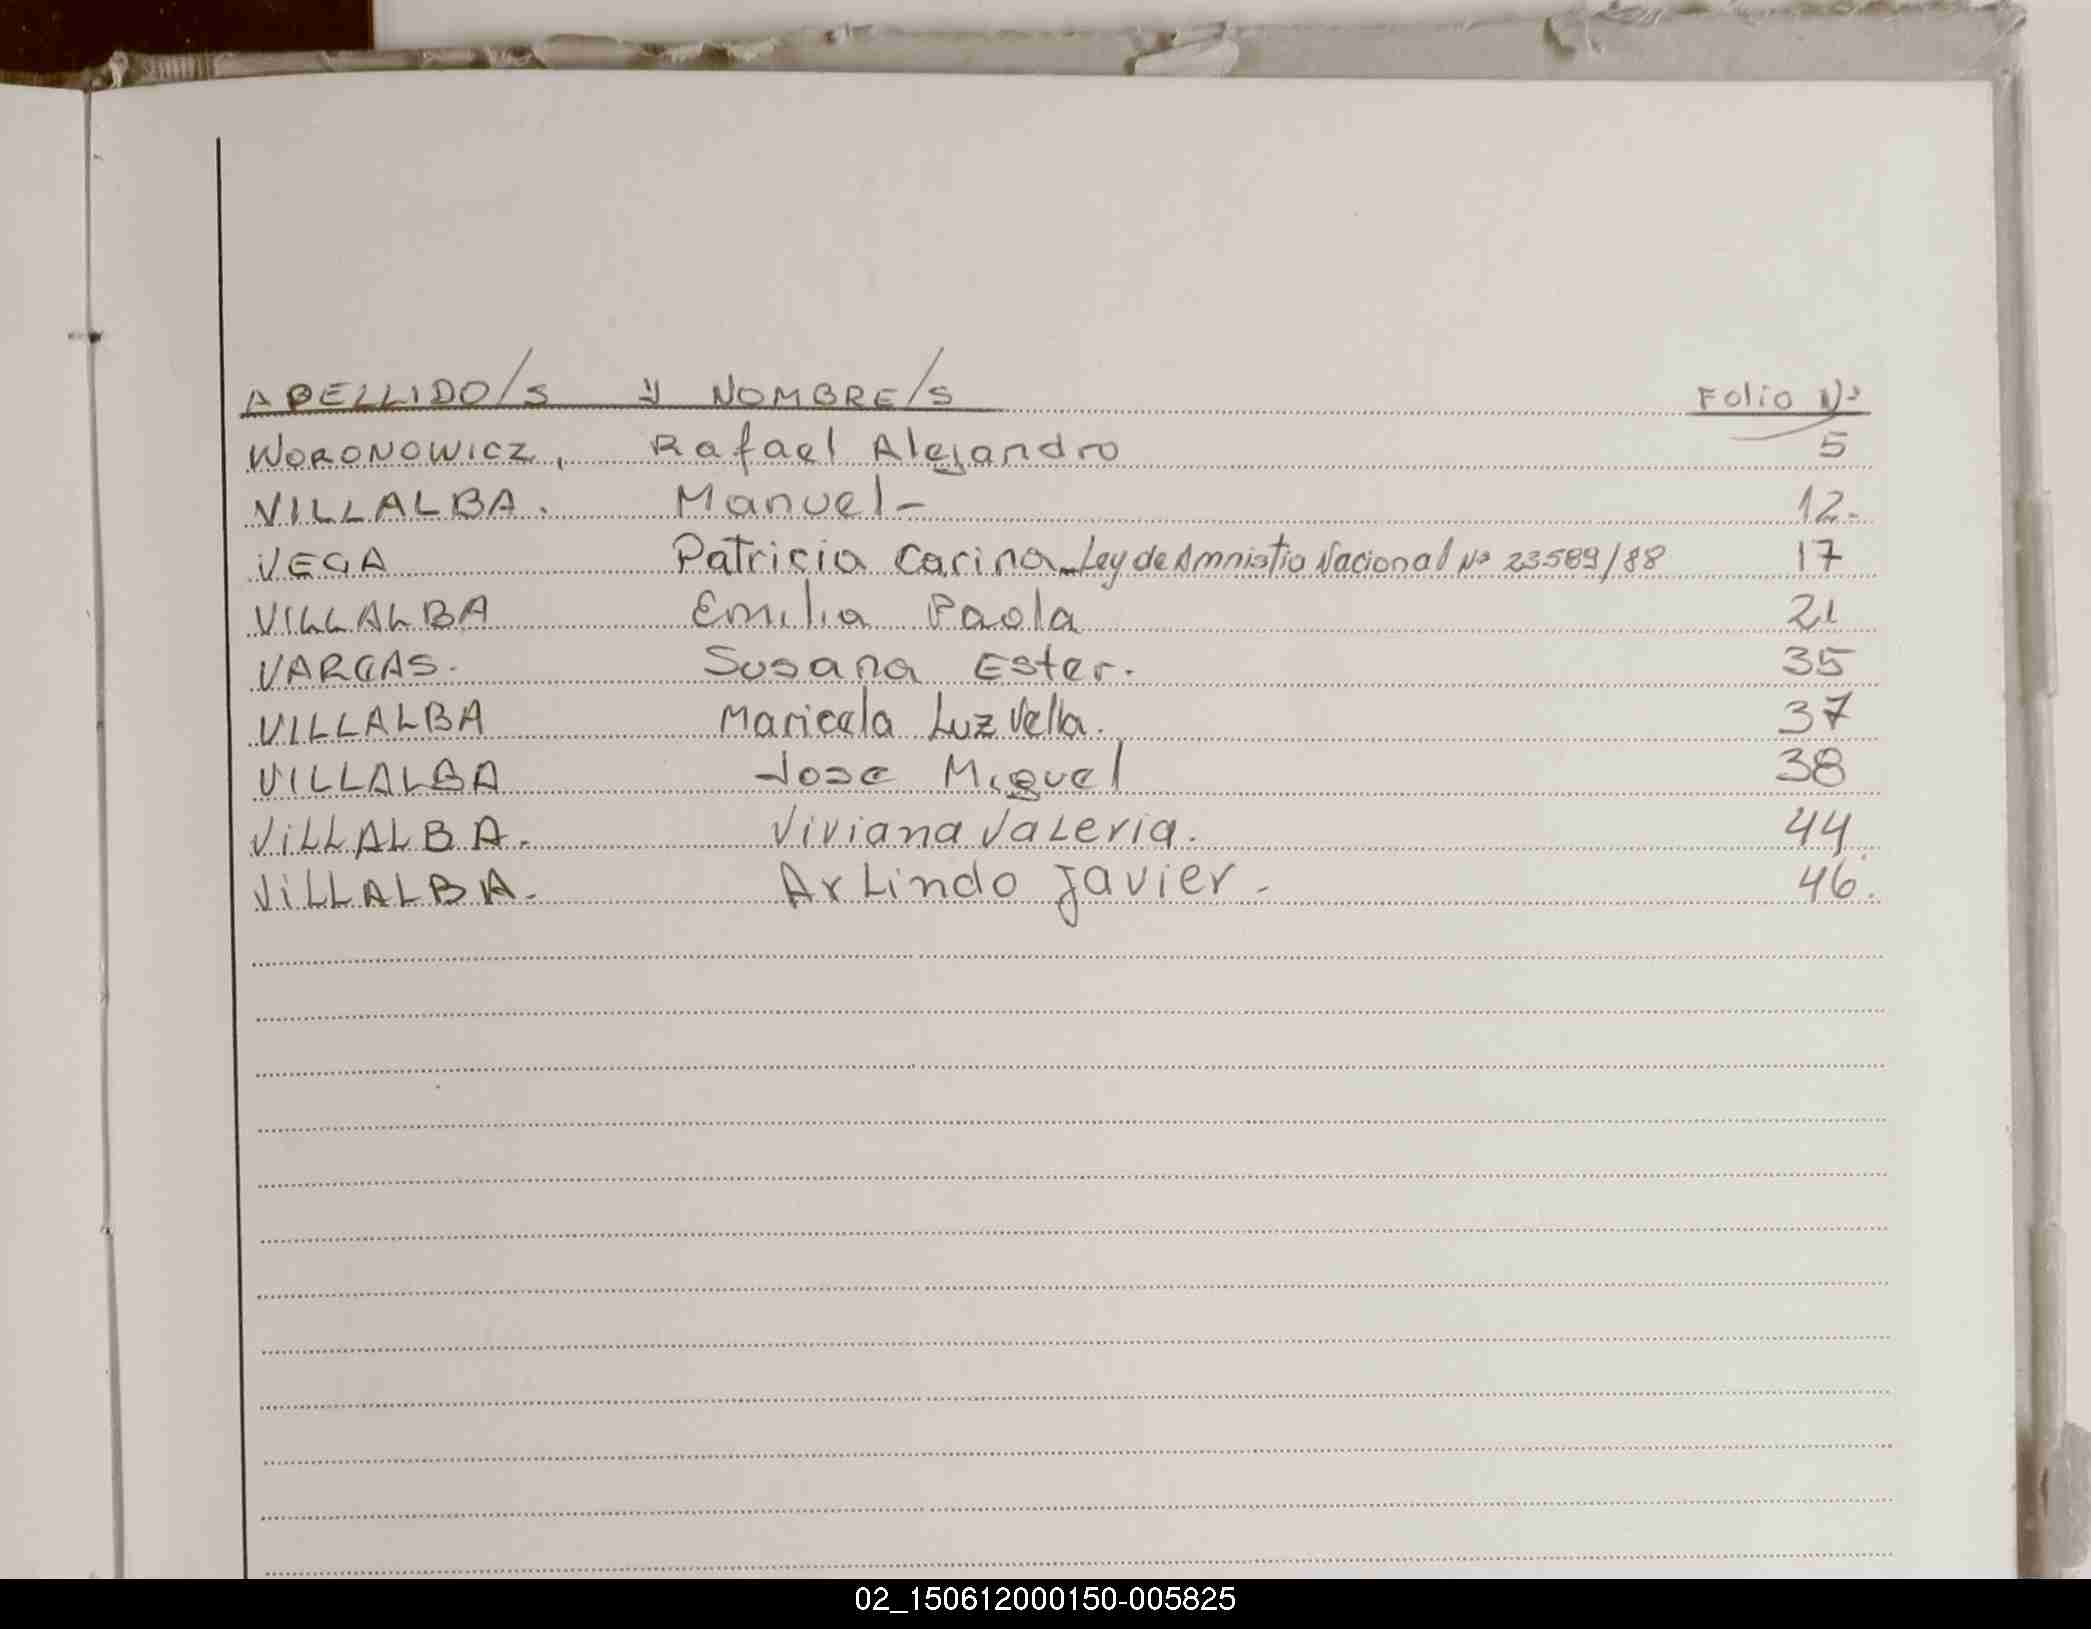 APELLIDO/S y NOMBRE/S Folio Nº
WORONOWICZ, Rafael Alejandro 5
VILLALBA. Manuel- 12.-
VEGA Patricia Carina-Ley de Amnistia Nacional Nº 23589/88 17
VILLALBA Emilia Paola 21
VARGAS. Susana Ester. 35
VILLALBA Maricela Luz Vella. 37
VILLALBA Jose Miguel 38
ViLLALBA. Viviana Valeria. 44
ViLLALBA.- Arlindo Javier.- 46.
02_150612000150-005825